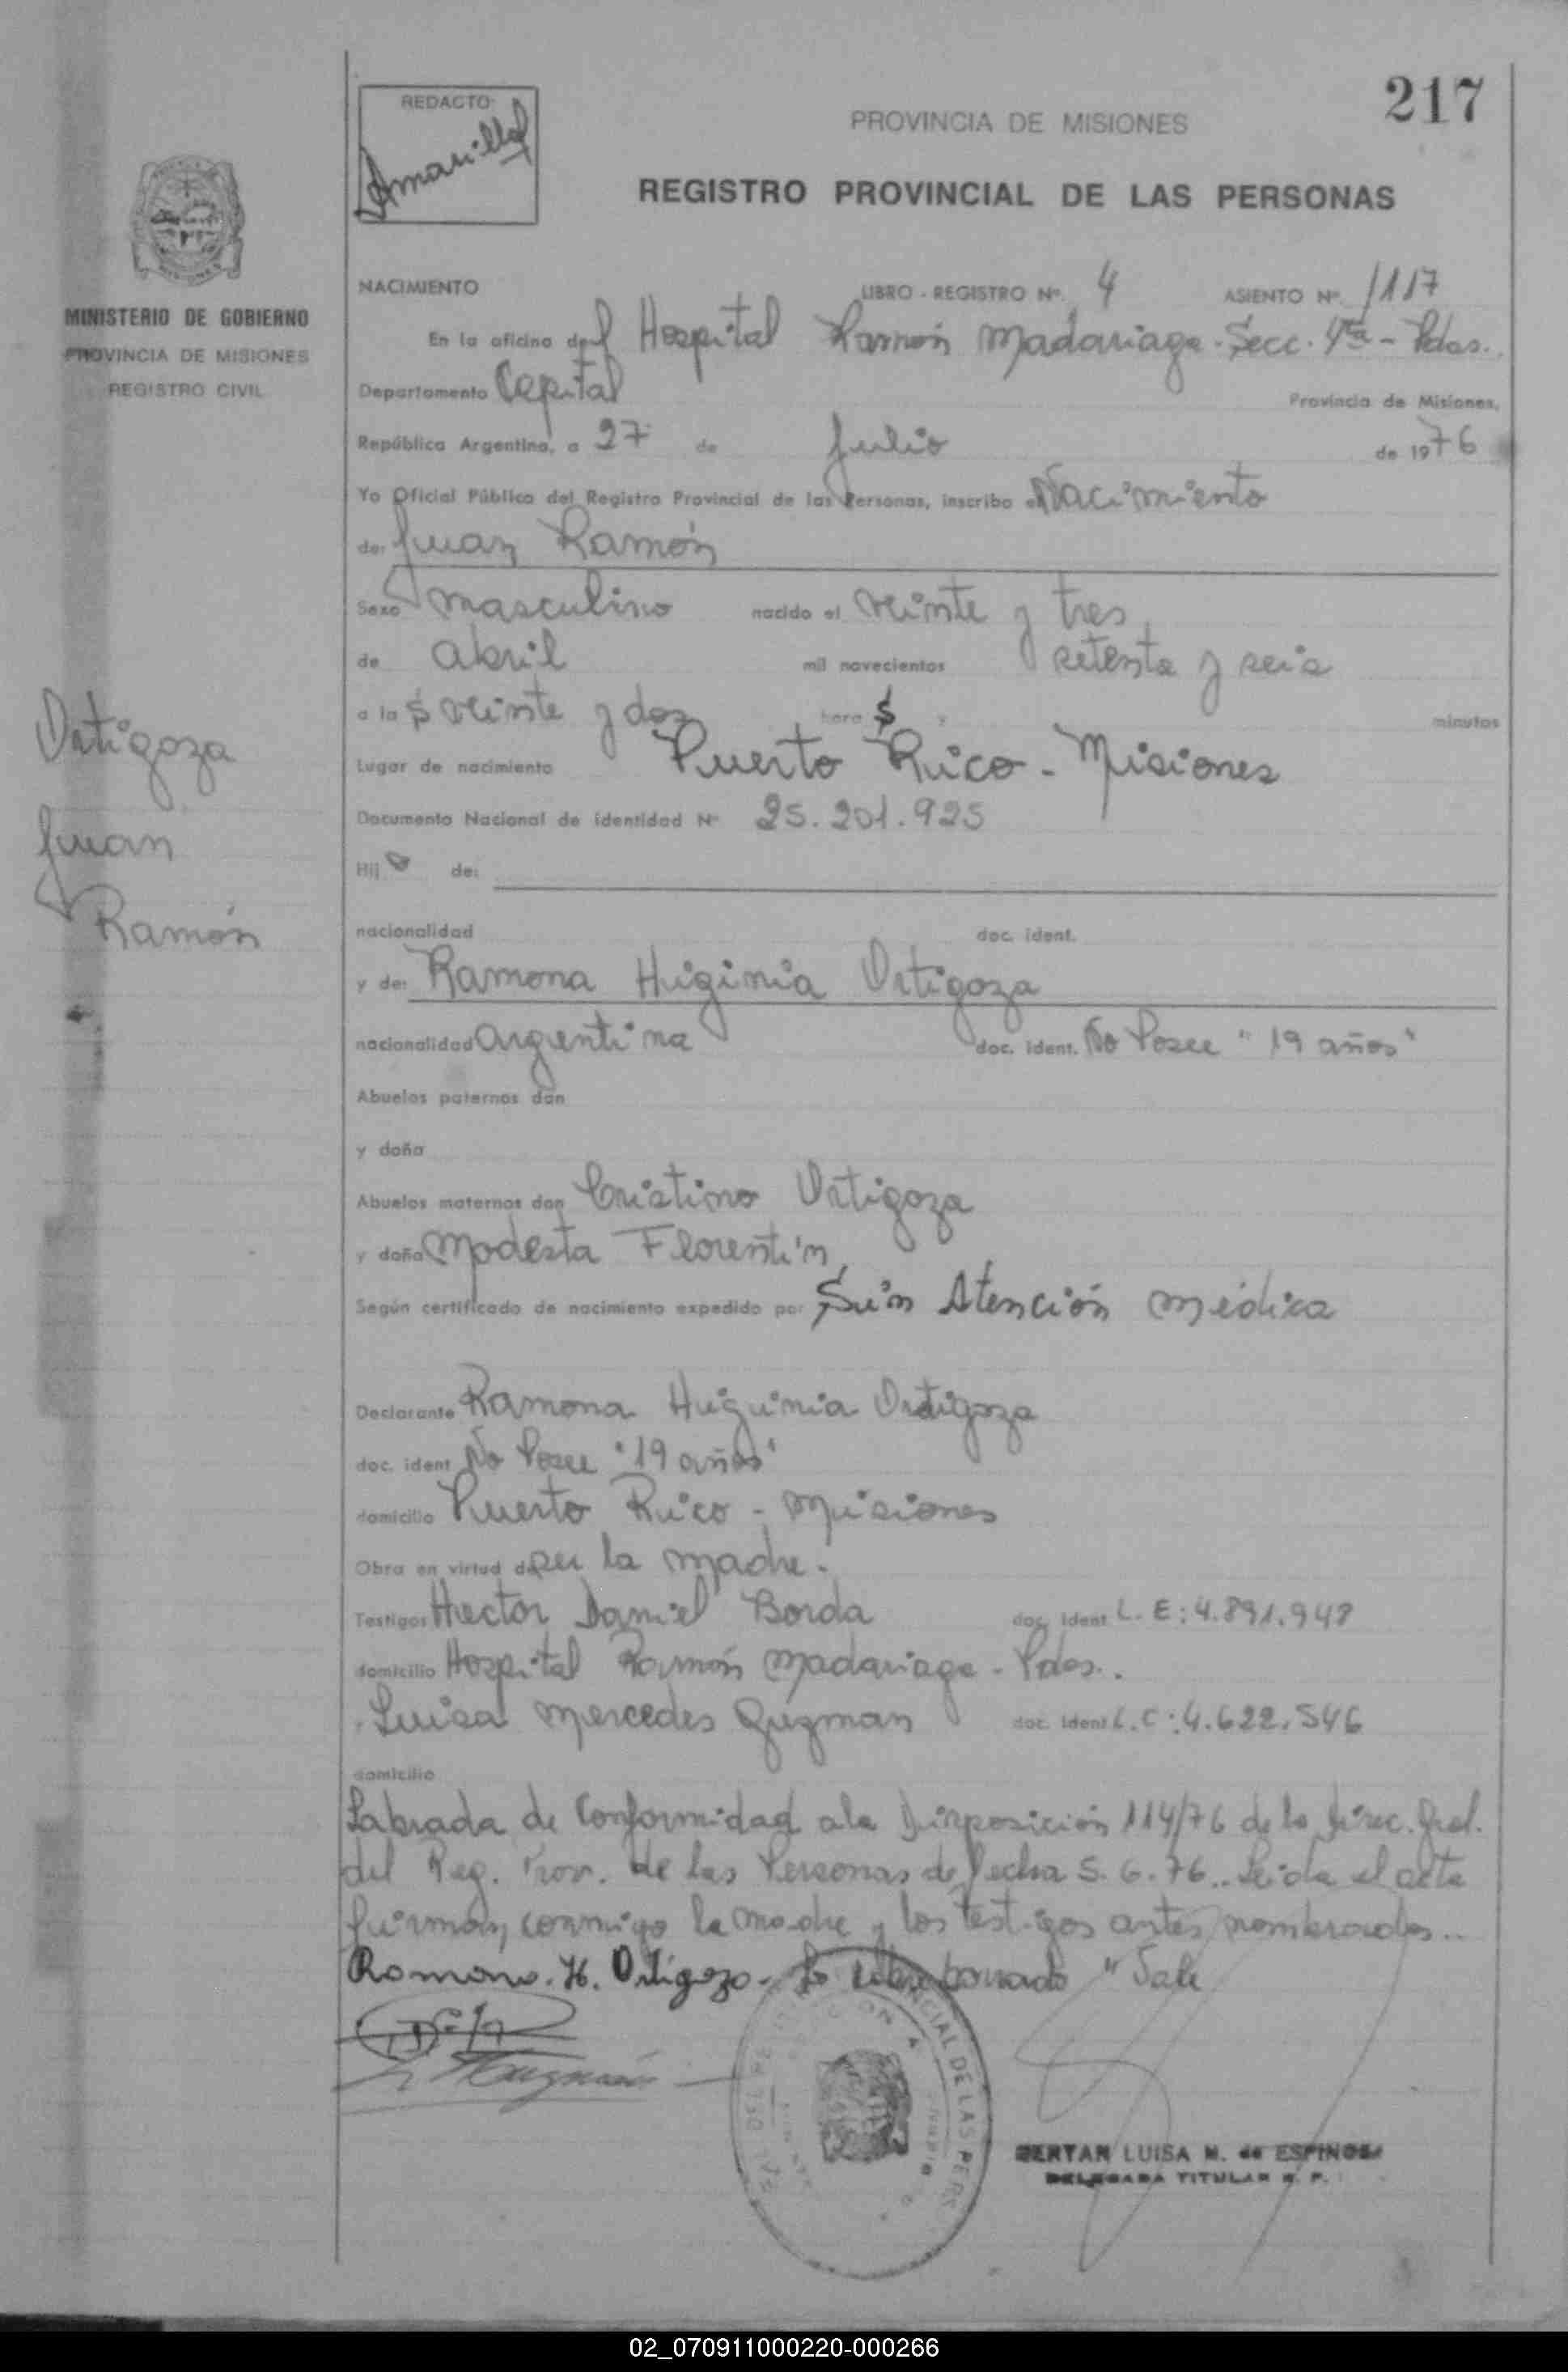 217
REDACTO
Amarilla
PROVINCIA DE MISIONES
REGISTRO PROVINCIAL DE LAS PERSONAS
MINISTERIO DE GOBIERNO
PROVINCIA DE MISIONES
REGISTRO CIVIL
NACIMIENTO LIBRO - REGISTRO Nº 4 ASIENTO Nº 1117
En la oficina del Hospital Ramón Madariaga - Secc. 4ta - Pdas.
Departamento Capital Provincia de Misiones,
República Argentina, a 27 de Julio de 1976
Yo Oficial Público del Registro Provincial de las Personas, inscribo el Nacimiento
de: Juan Ramón
Sexo masculino nacido el veinte y tres
de abril mil novecientos setenta y seis
a las veinte y dos horas y minutos
Lugar de nacimiento Puerto Rico - Misiones
Documento Nacional de identidad Nº 25.201.925
Hijo de:
nacionalidad doc. ident.
y de: Ramona Higinia Ortigoza
nacionalidad Argentina doc. ident. No Posee "19 años"
Abuelos paternos don
y doña
Abuelos maternos don Cristino Ortigoza
y doña Modesta Florentín
Según certificado de nacimiento expedido por Sin Atención médica
Declarante Ramona Higinia Ortigoza
doc. ident No Posee "19 años"
domicilio Puerto Rico - Misiones
Obra en virtud de ser la madre.
Testigos Hector Daniel Borda doc. ident L.E: 4.891.948
domicilio Hospital Ramón Madariaga - Pdas.
Luisa Mercedes Guzman doc. ident L.C: 4.622.546
domicilio
Labrada de Conformidad a la Disposición 114/76 de la Direc. Gral.
del Reg. Prov. de las Personas de fecha 5.6.76.. Leida el acta
firman conmigo la madre y los testigos antes nombrados..
Ramona. H. Ortigoza - Lo sobre borrado "Vale
Ortigoza
Juan
Ramón
BERTAN LUISA M. de ESPINOSA
DELEGADA TITULAR R. P.
02_070911000220-000266